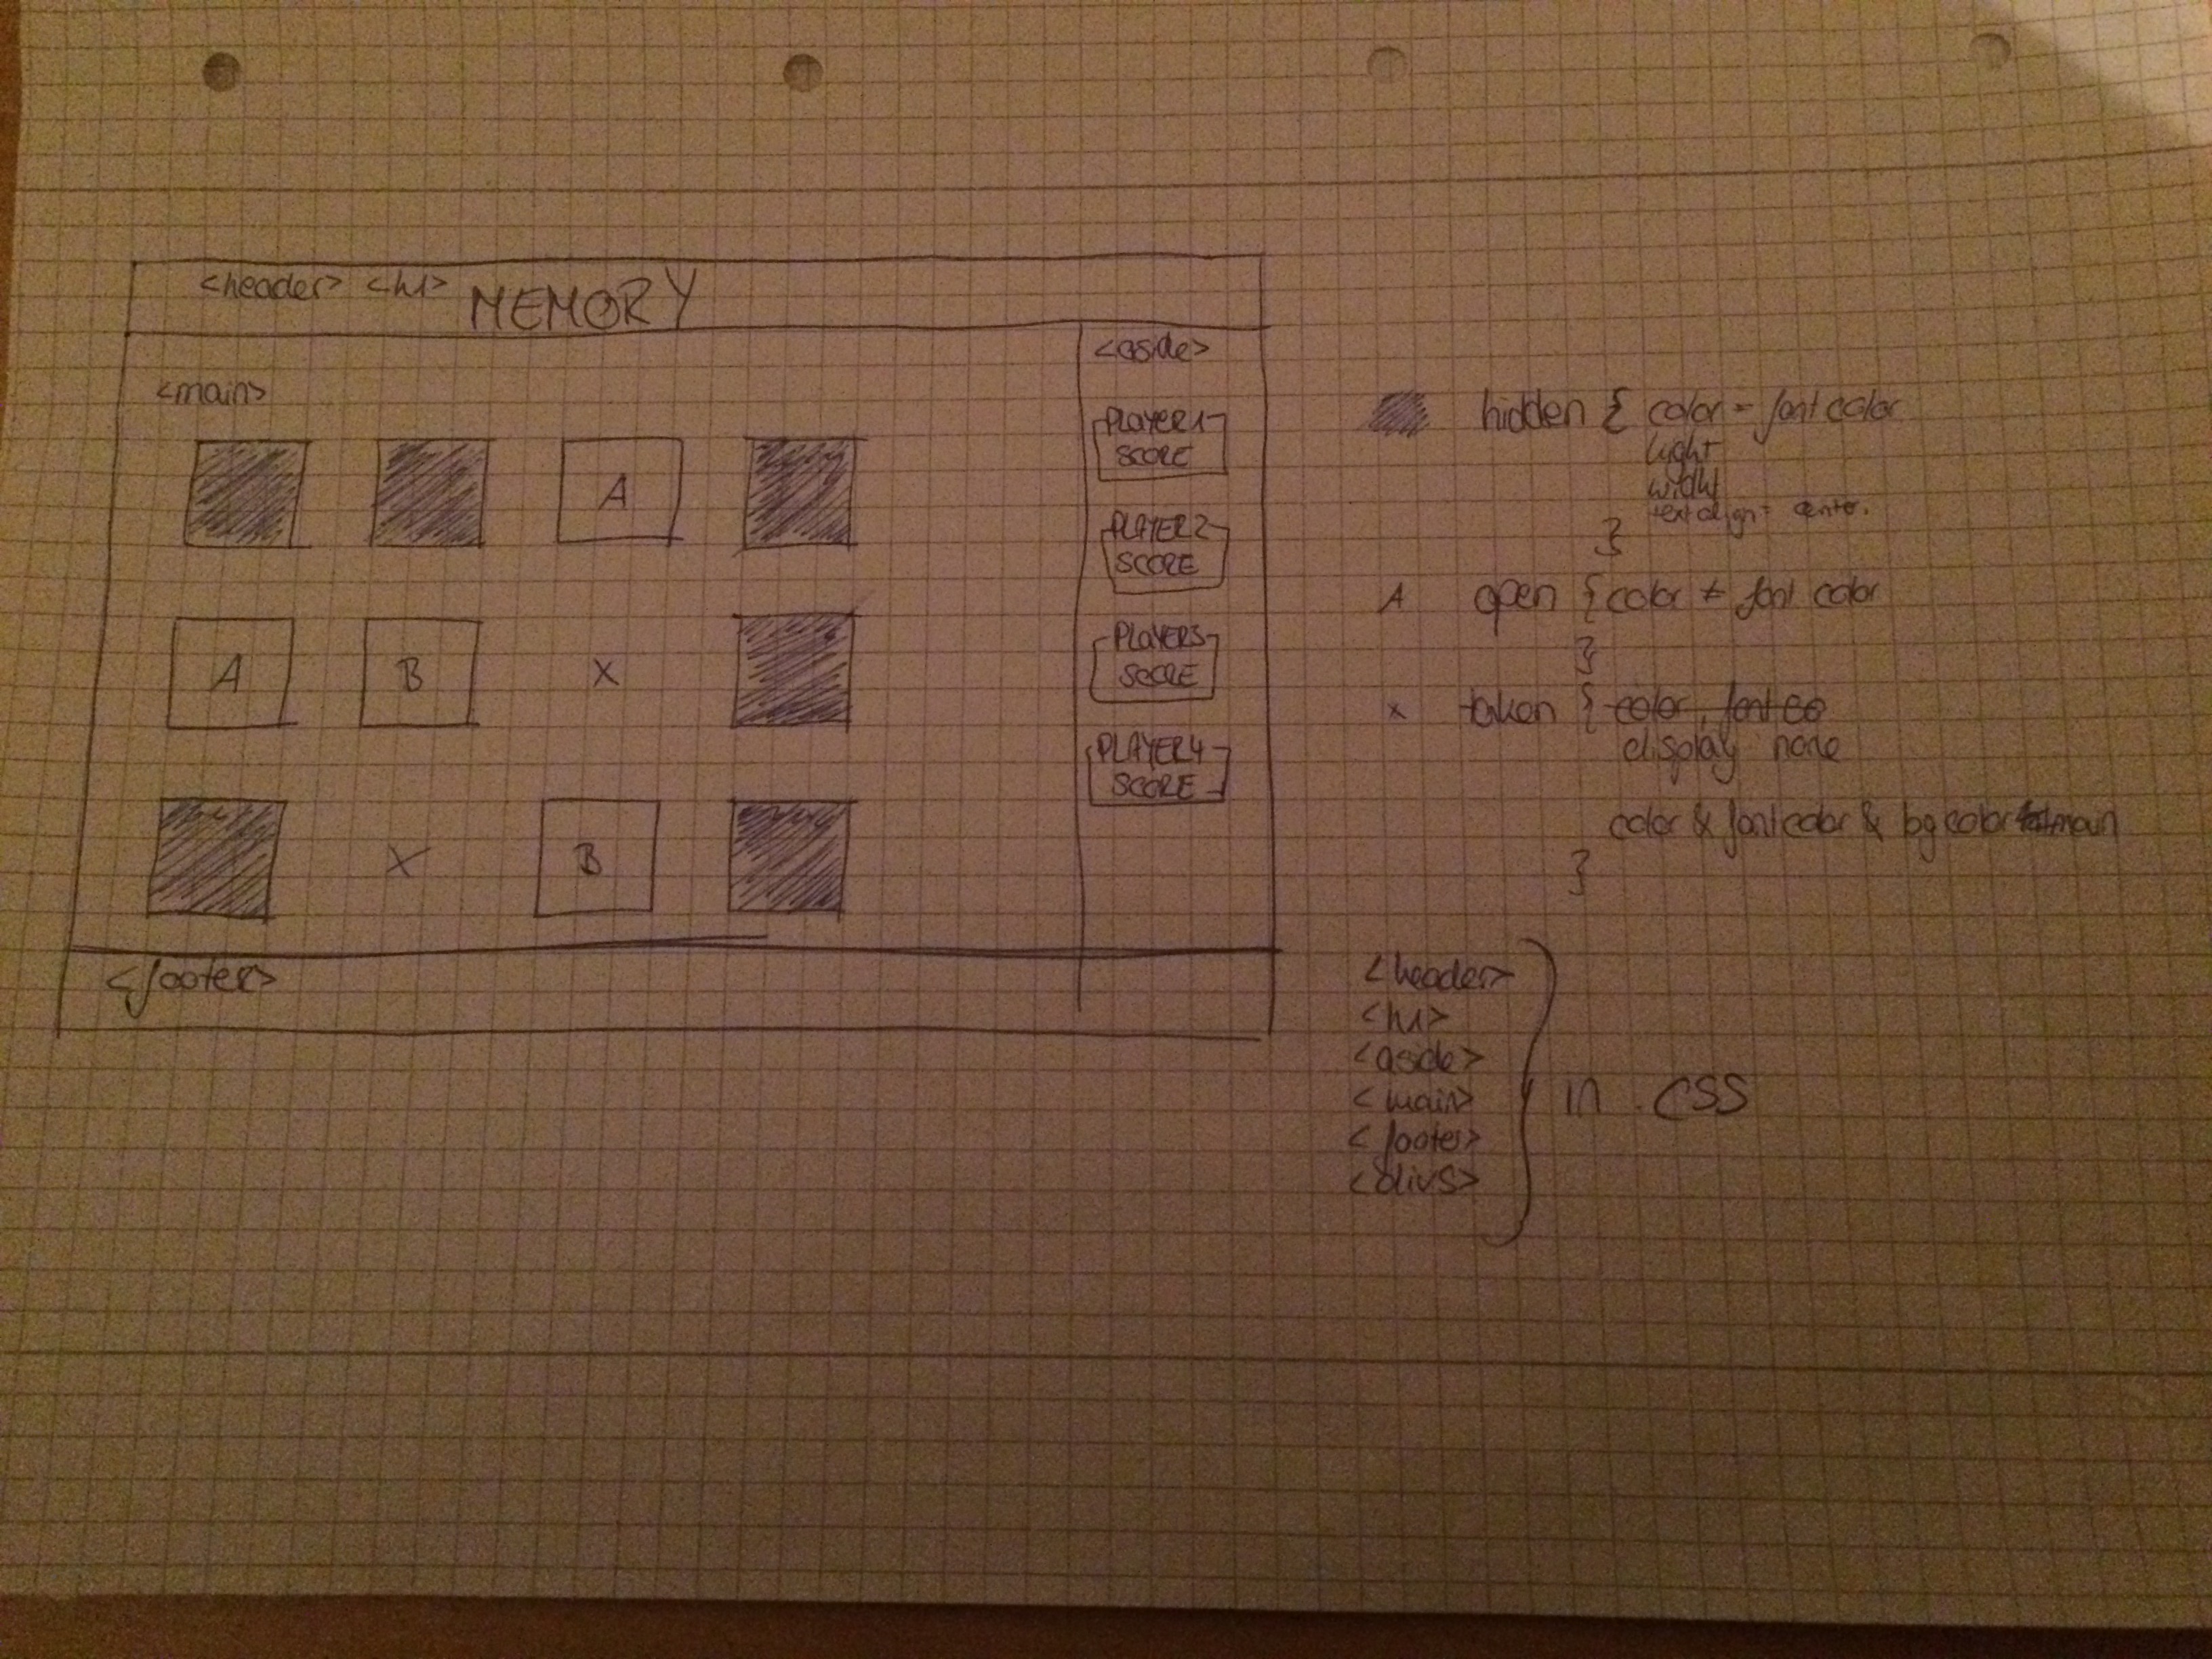 <header> <h1> MEMORY
<main>
A
A B X
X B
<footer>
<aside>
PLAYER1
SCORE
PLAYER2
SCORE
PLAYER3
SCORE
PLAYER4
SCORE
hidden { color = font color
hight
widht
text align = center.
}
A open { color ≠ font color
}
x taken { color, font co
display none
color & font color & bg color main
}
<header>
<h1>
<aside>
<main>
<footer>
<divs>
in .CSS